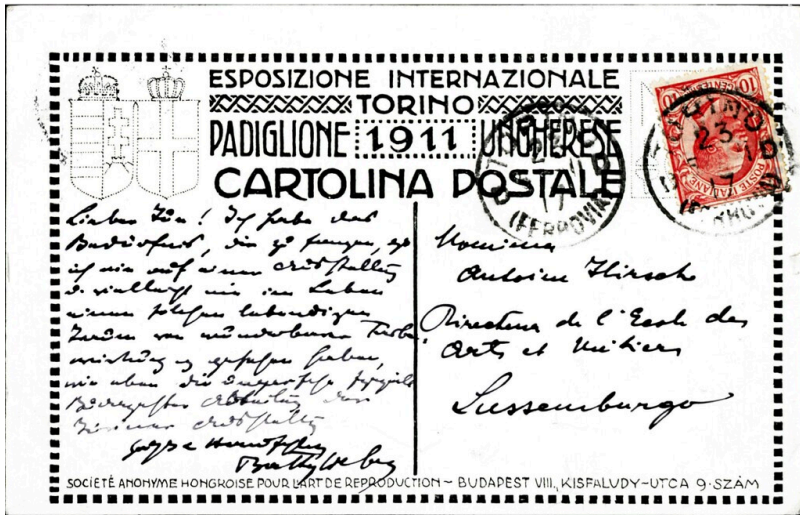 ESPOSIZIONE INTERNAZIONALE
TORINO
PADIGLIONE 1911 UNGHERESE
CARTOLINA POSTALE
POSTE ITALIANE
10
TORINO
23
17
(FERROVIA)
TORINO
23
17
(FERROVIA)
Lieber Hir! Ich habe das
Bedürfnis, dir zu sagen, 
ich nie auf einer Ausstellung
& vielleicht nie im Leben
einen solchen lebendigen
von wunderbarer Farben
wirkung gesehen habe,
wie eben die ungarische
Abteilung der
Ausstellung
Batty Weber
Monsieur
Antoine Hirsch
Directeur de l'Ecole des
Arts et Métiers
Lussemburgo
SOCIETÉ ANONYME HONGROISE POUR L'ART DE REPRODUCTION ~ BUDAPEST VIII., KISFALUDY-UTCA 9·SZÁM